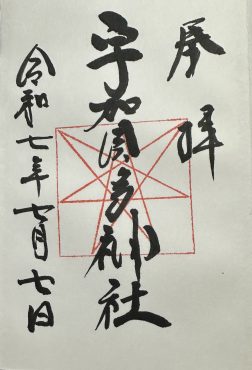 奉拝
宇加冨多神社
令和七年七月七日